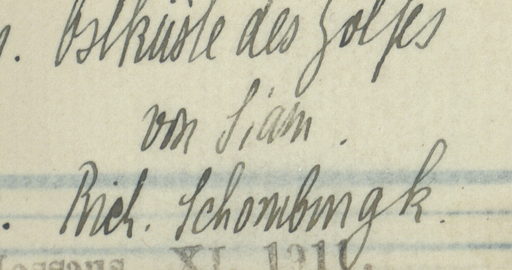 . Ostküste des Golfes
von Siam.
. Rich. Schomburgk.
XI. 1911.